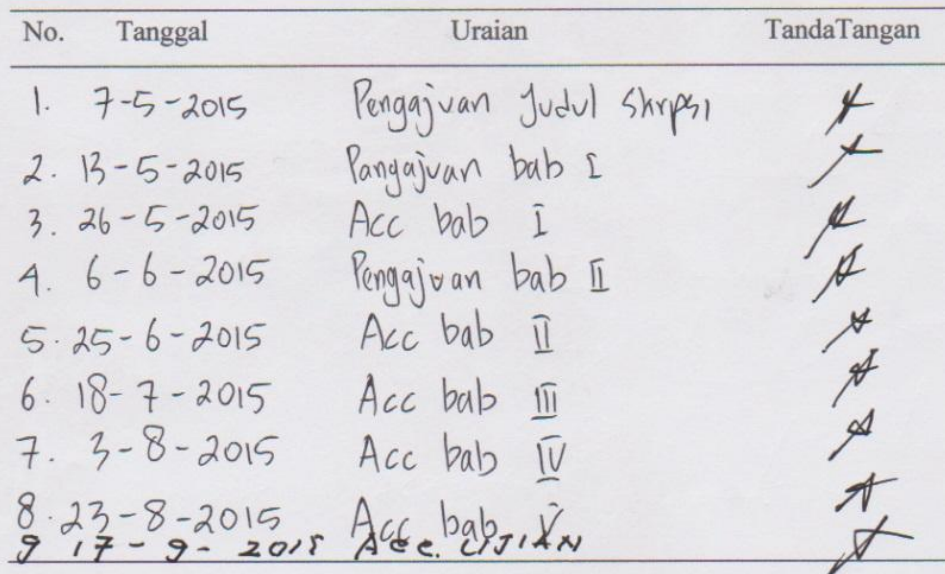 No. Tanggal Uraian TandaTangan
1. 7-5-2015 Pengajuan Judul Skripsi
2. 13-5-2015 Pangajuan bab I
3. 26-5-2015 Acc bab I
4. 6-6-2015 Pengajuan bab II
5. 25-6-2015 Acc bab II
6. 18-7-2015 Acc bab III
7. 3-8-2015 Acc bab IV
8. 23-8-2015 Acc bab V
9 17-9-2015 Acc. UJIAN